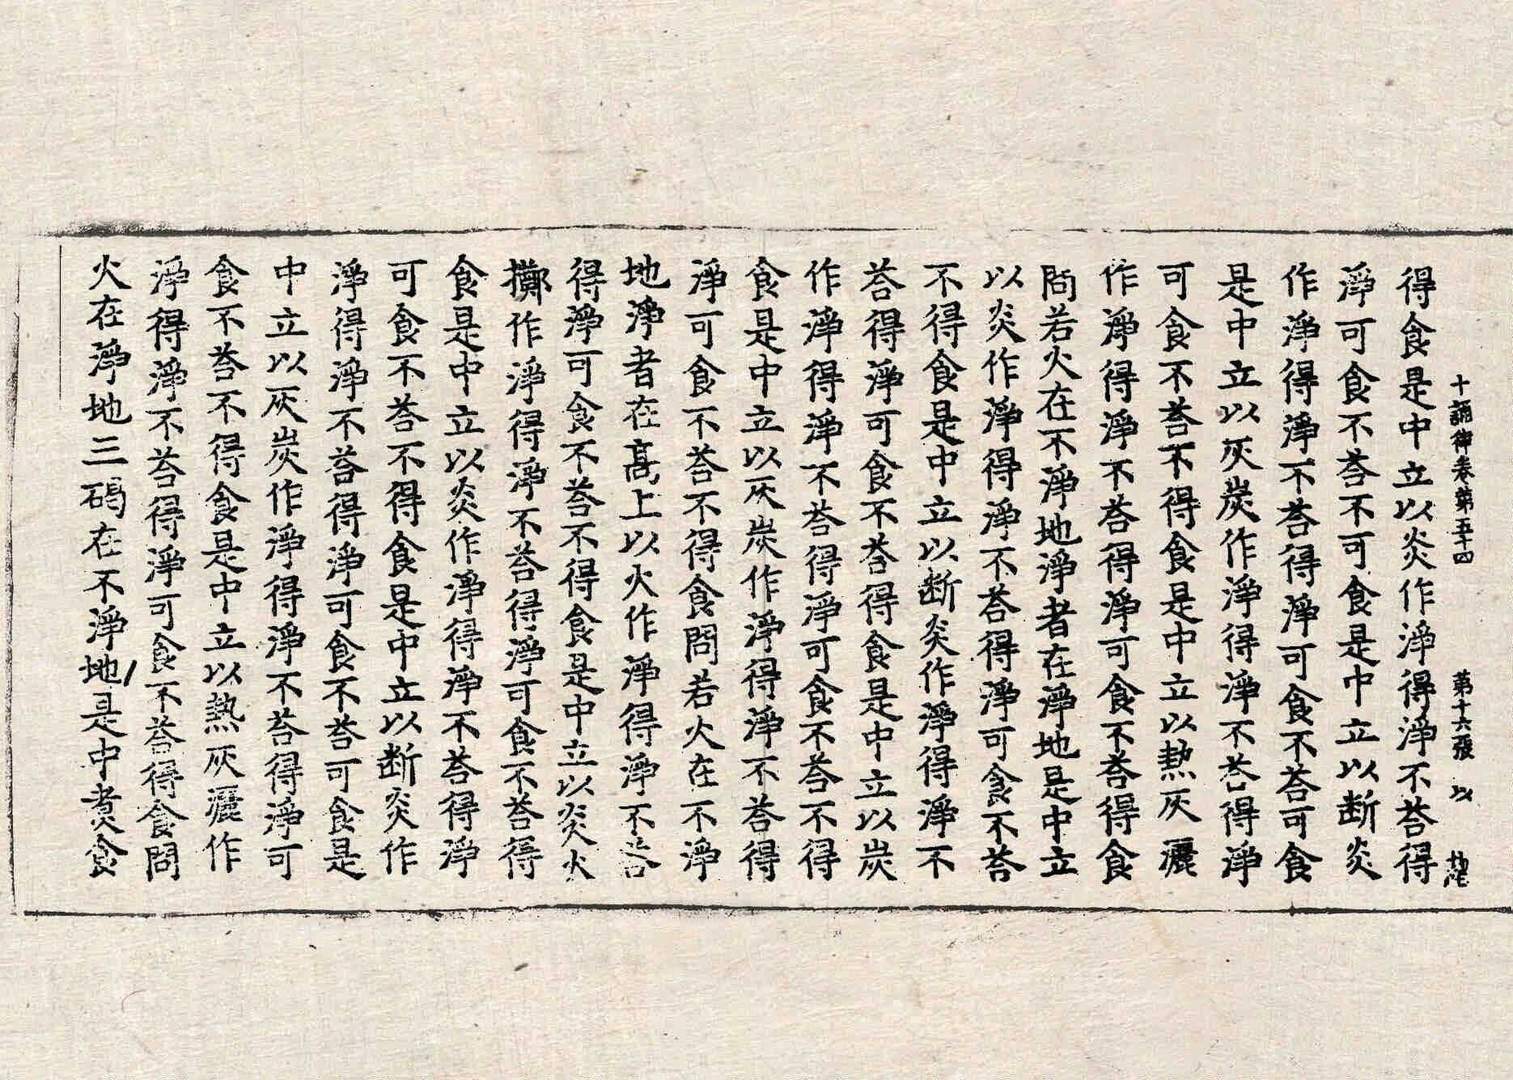 十誦律卷第五十四 第十六張 以
得食是中立以炎作淨得淨不荅得
淨可食不荅不可食是中立以断炎
作淨得淨不荅得淨可食不荅可食
是中立以灰炭作淨得淨不荅得淨
可食不荅不得食是中立以熱灰灑
作淨得淨不荅得淨可食不荅得食
問若火在不淨地淨者在淨地是中立
以炎作淨得淨不荅得淨可食不荅
不得食是中立以断炎作淨得淨不
荅得淨可食不荅得食是中立以炭
作淨得淨不荅得淨可食不荅不得
食是中立以灰炭作淨得淨不荅得
淨可食不荅不得食問若火在不淨
地淨者在高上以火作淨得淨不荅
得淨可食不荅不得食是中立以炎火
擲作淨得淨不荅得淨可食不荅得
食是中立以炎作淨得淨不荅得淨
可食不荅不得食是中立以断炎作
淨得淨不荅得淨可食不荅可食是
中立以灰炭作淨得淨不荅得淨可
食不荅不得食是中立以熱灰灑作
淨得淨不荅得淨可食不荅得食問
火在淨地三碼在不淨地是中煮食